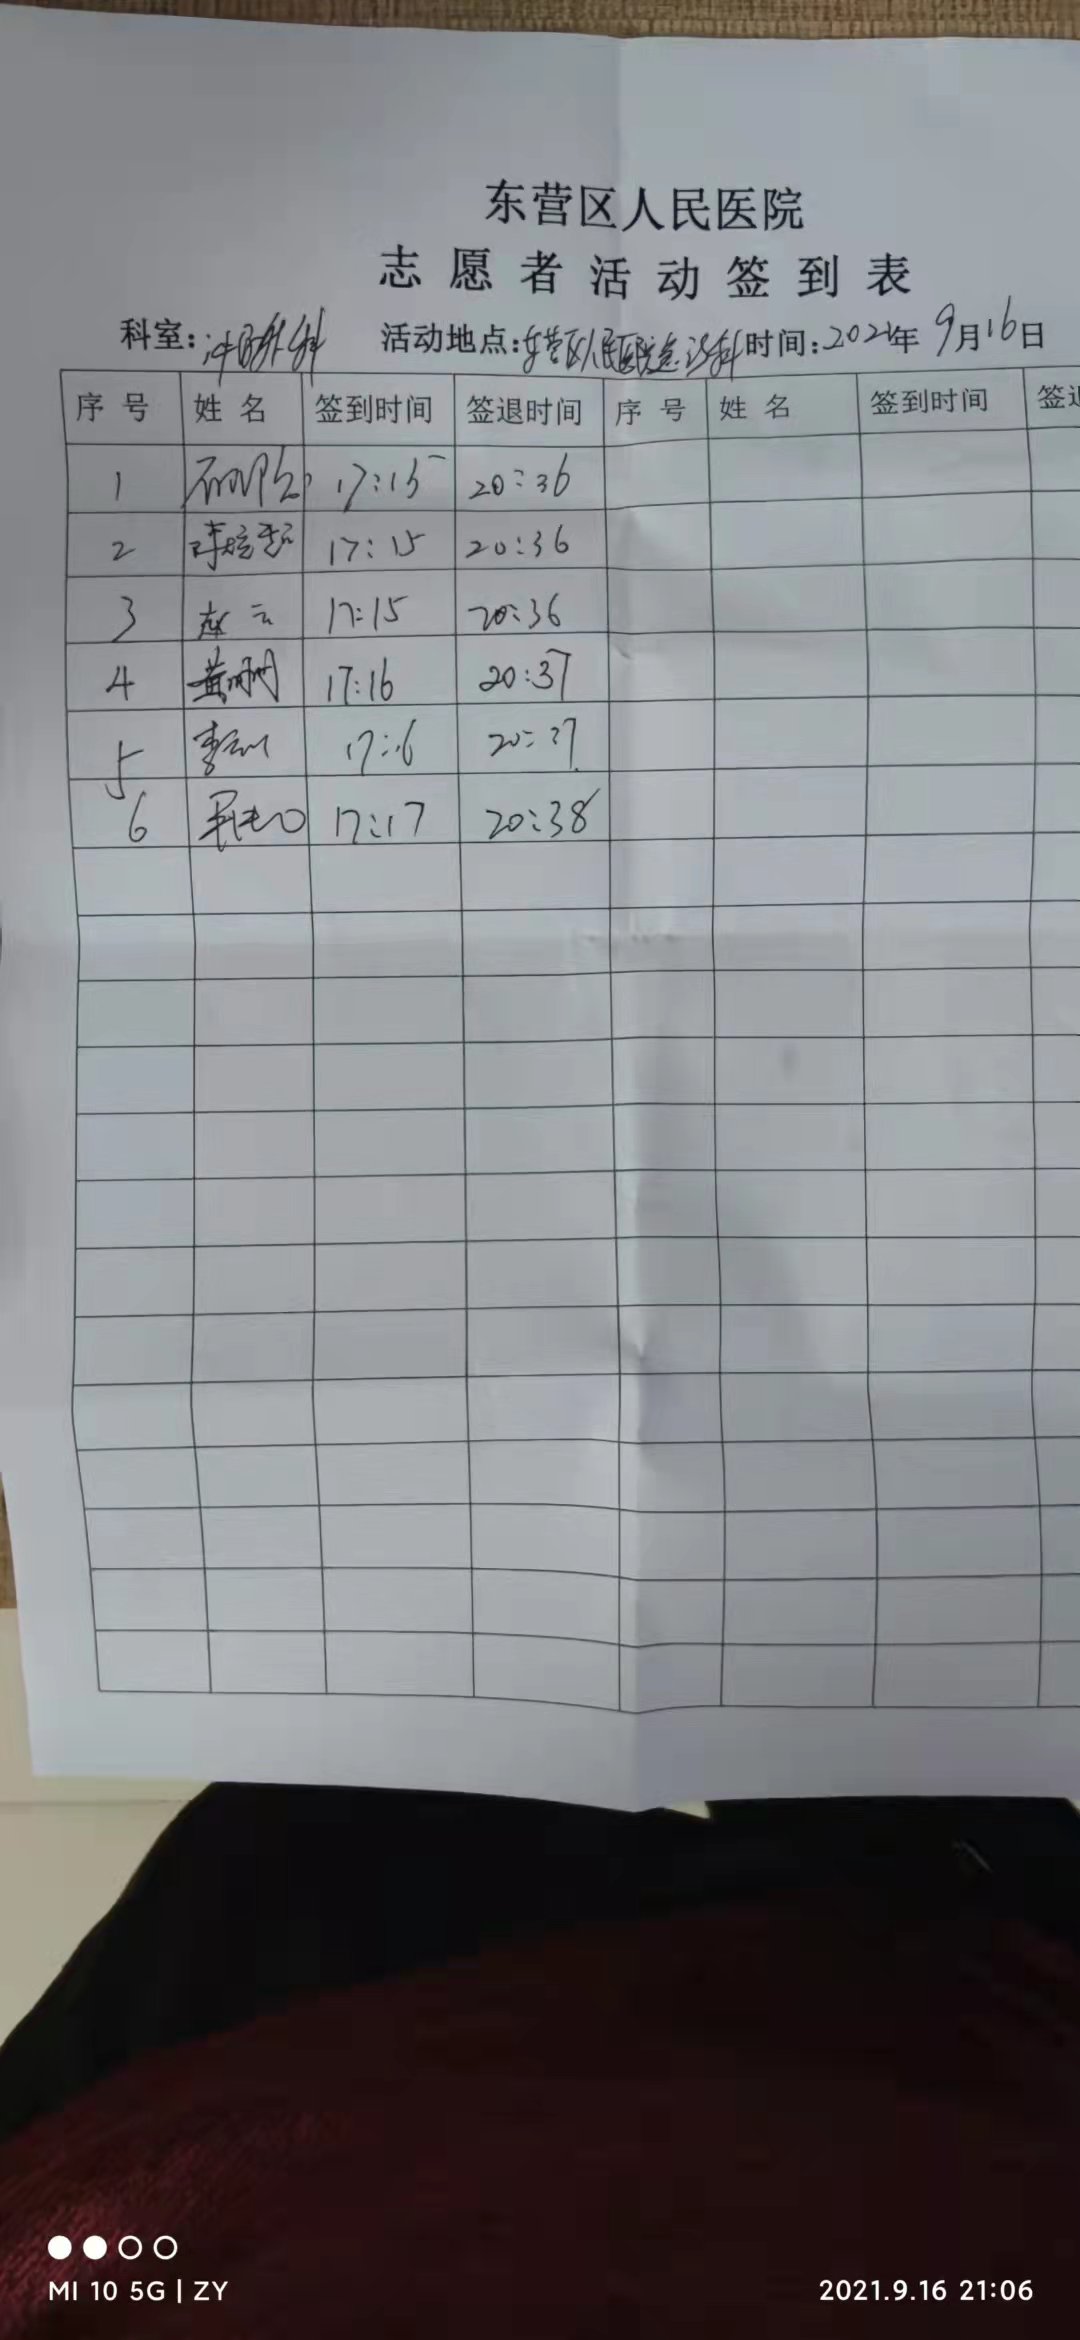 东营区人民医院
志愿者活动签到表
科室:泌尿外科 活动地点:东营区人民医院急诊科 时间:2021年9月16日
序号 姓名 签到时间 签退时间 序号 姓名 签到时间 签退
1 17:15 20:36
2 17:15 20:36
3 17:15 20:36
4 黄 17:16 20:37
5 李 17:16 20:37
6 17:17 20:38
MI 10 5G | ZY
2021.9.16 21:06